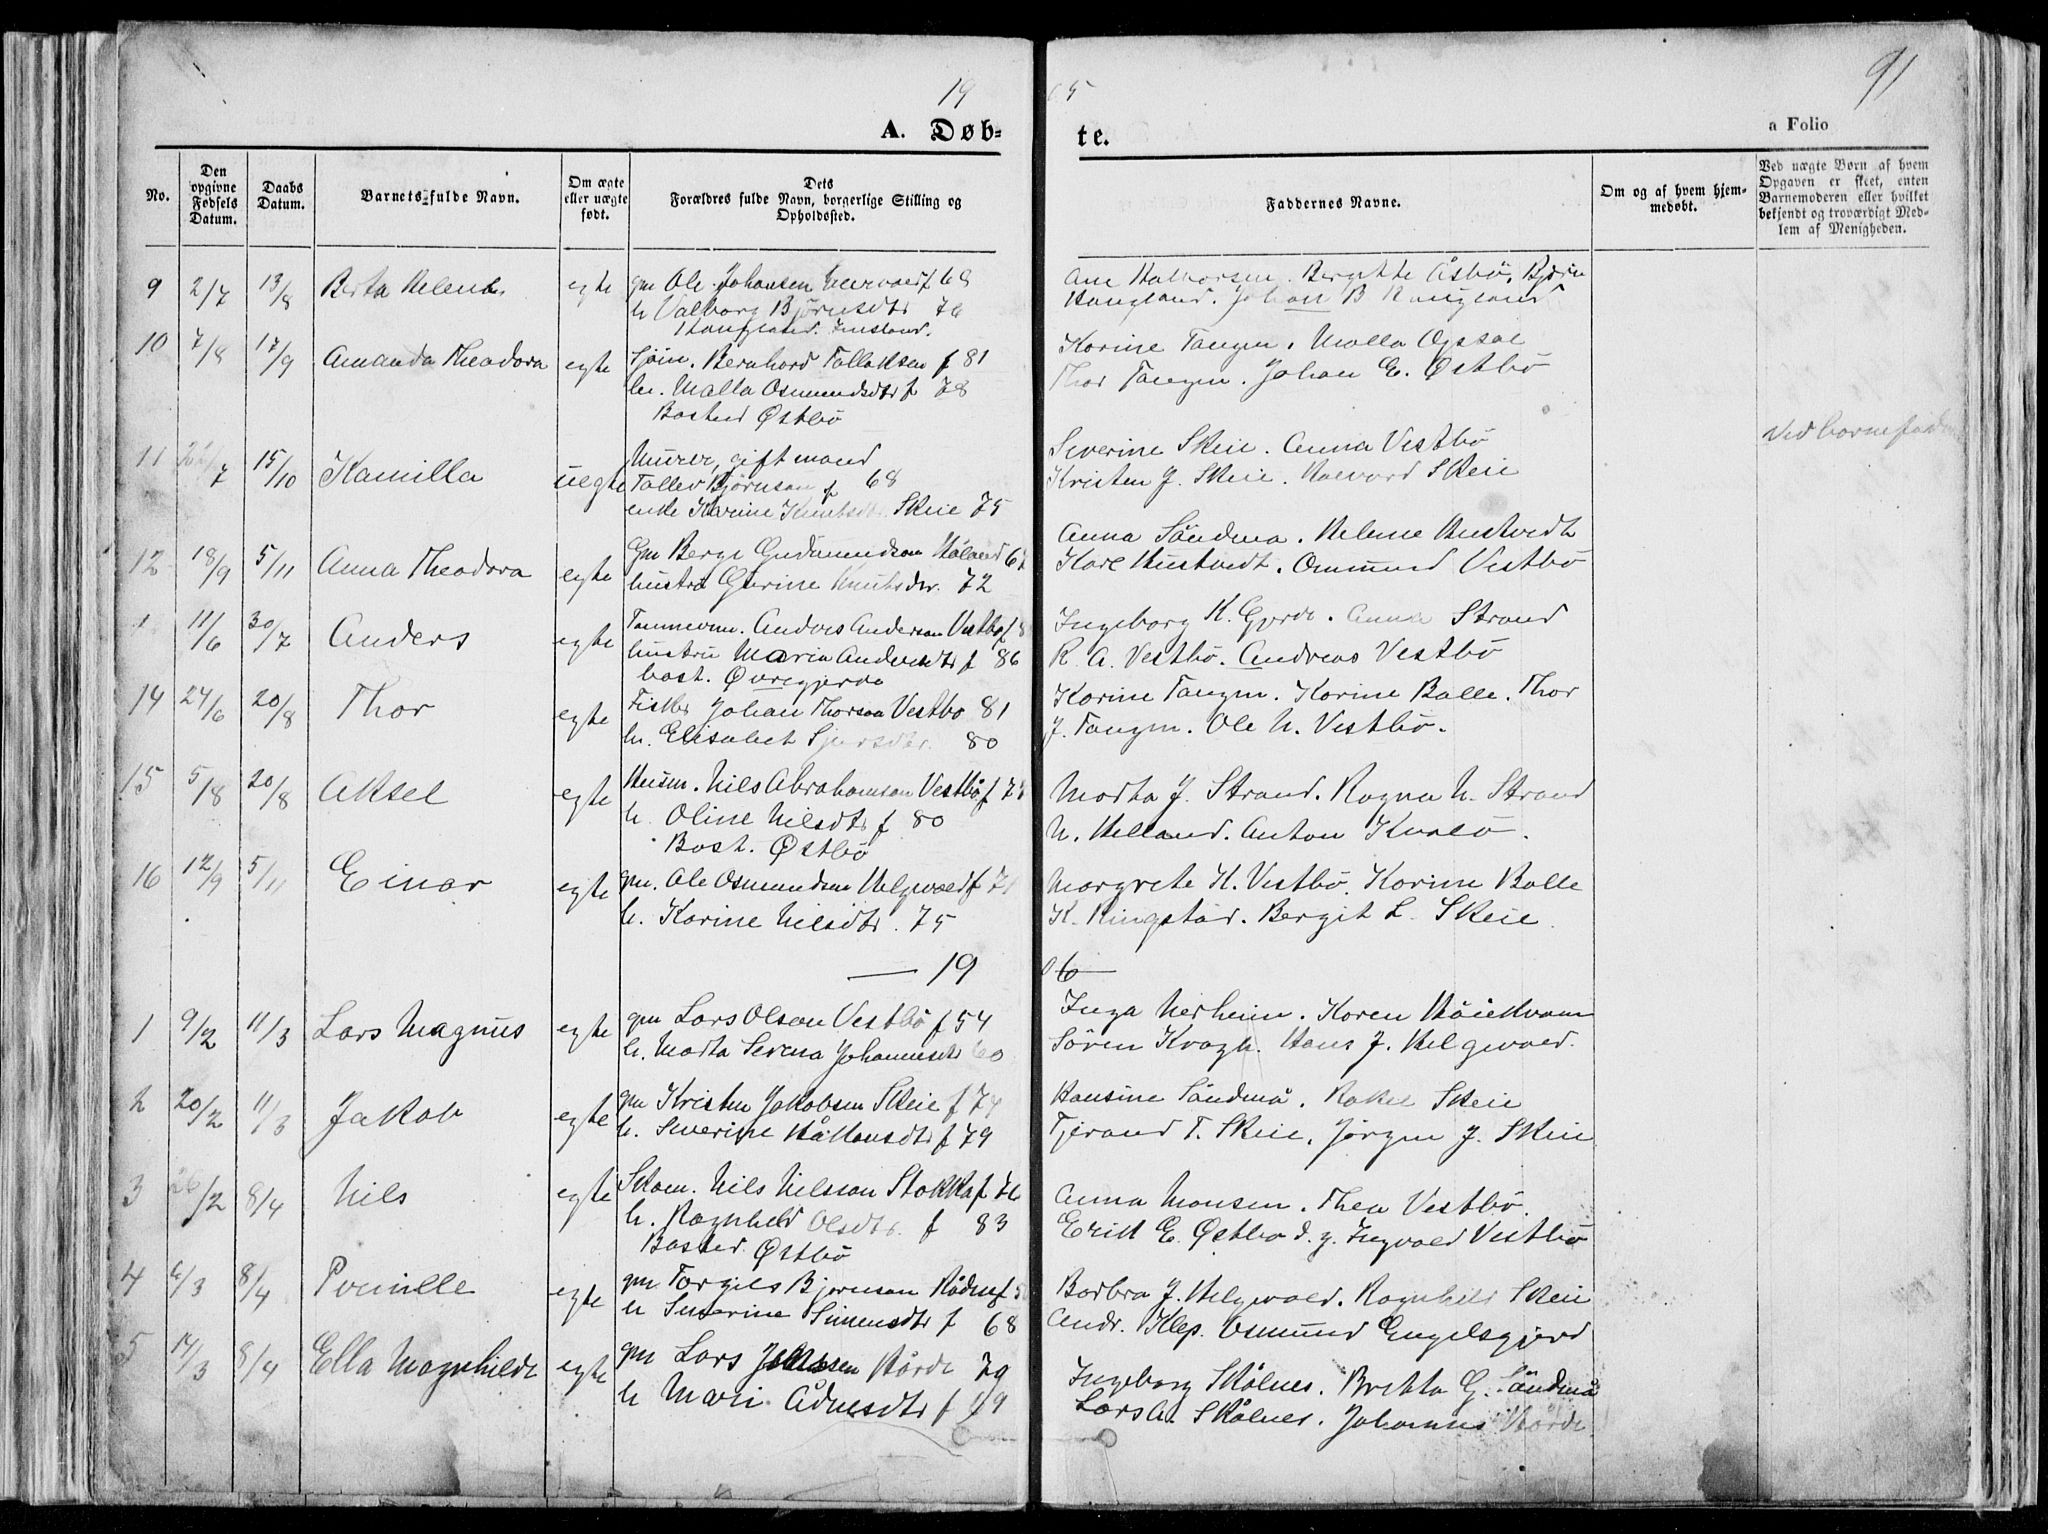 19 05
91
A. Døbte.
a Folio
No.
Den opgivne Fødsels Datum.
Daabs Datum.
Barnets fulde Navn.
Om ægte eller uægte født.
Dets Forældres fulde Navn, borgerlige Stilling og Opholdssted.
Faddernes Navne.
Om og af hvem hjemmedøbt.
Ved uægte Børn af hvem Opgaven er skeet, enten Barnemoderen eller hvilket bekjendt og troværdigt Medlem af Menigheden.
9 2/7 13/8 Berta Helene egte gm Ole Johansen f 68
h Valborg Björnsdtr 76
Imsland.
Ane Halvorsen. Bergitte Åsbö, Björn
Haugland. Johan B Haugland
10 7/8 17/9 Amanda Theodora egte Sjöm. Bernhard Tollaksen f 81
h. Malla Osmundsdtr f 78
Bosted Østbö
Karine Tangen. Malla Opsal
Thor Tangen. Johan E. Østbö
11 /7 15/10 Kamilla uegte Murer, gift mand
Tollev Björnson f 68
enke Karine Knutsdtr Skeie 75
Severine Skeie. Anna Vestbö
Kristen J. Skeie. Halvard Skeie
Ved barnefaderen
12 18/9 5/11 Anna Theodora egte Gm Berge Gudmundson
hustru Gurine Knutsdtr. 72
Anna Söndenå. Helene Hustvedt
Karl Hustvedt. Ommund Vestbö
1 11/6 30/7 Anders egte Tömmerm. Anders Anderson Vestbö f 8
hustru Maria Andersdtr f 86
bost. Øvregjerde
Ingeborg K. Gjerde. Anna Strand
R. A. Vestbö. Andreas Vestbö
14 24/6 20/8 Thor egte Fisker Johan Thorson Vestbö 81
h. Elisabet Sjursdtr. 80
Karine Tangen. Karine Balle. Thor
J. Tangen. Ole N. Vestbö.
15 5/8 20/8 Aksel egte Husm. Nils Abrahamson Vestbö f 78
h. Oline Nilsdtr f 80
Bost. Østbö
Marta J. Strand. Ragna N. Strand
N. Helland. Anton Kvalö.
16 12/9 5/11 Einar egte gm. Ole Osmundsen Helgevold f 71
h. Karine Nilsdtr. 75
Margrete K. Vestbö. Karine Balle
K. Ringstad. Bergit L. Skeie.
— 19 06 —
1 9/2 11/3 Lars Magnus egte gm Lars Olson Vestbö f 54
h. Marta Serena Johannesdtr 60
Inga Nerheim. Karen
Sören Kragh. Hans J. Helgevold.
2 20/2 11/3 Jakob egte gm Kristen Jakobsen Skeie f 74
h. Severine Håkonsdtr f 79
Hansine Söndenå. Rakel Skeie
Tjerand T. Skeie. Jörgen J. Skeie
3 26/2 8/4 Nils egte Skom. Nils Nilsson Stokka f 76
h. Ragnhild Olsdtr. f 83
Bosted Østbö
Anna Monsen. Thea Vestbö.
Erik E. Østbö d. y. Ingvald Vestbö
4 6/3 8/4 Pernille egte gm Torgils Bjørnson
h Severine Simensdtr f 68
Barbra J. Helgevold. Ragnhild Skeie
Andr. Klep. Osmund Engelsgjerd
5 14/3 8/4 Ella Magnhilde egte gm Lars Johnsen Hörde 79
h Mari Ådnesdtr f 79
Ingeborg Skålnes. Britta G. Söndenå
Lars A. Skålnes. Johannes Hörde